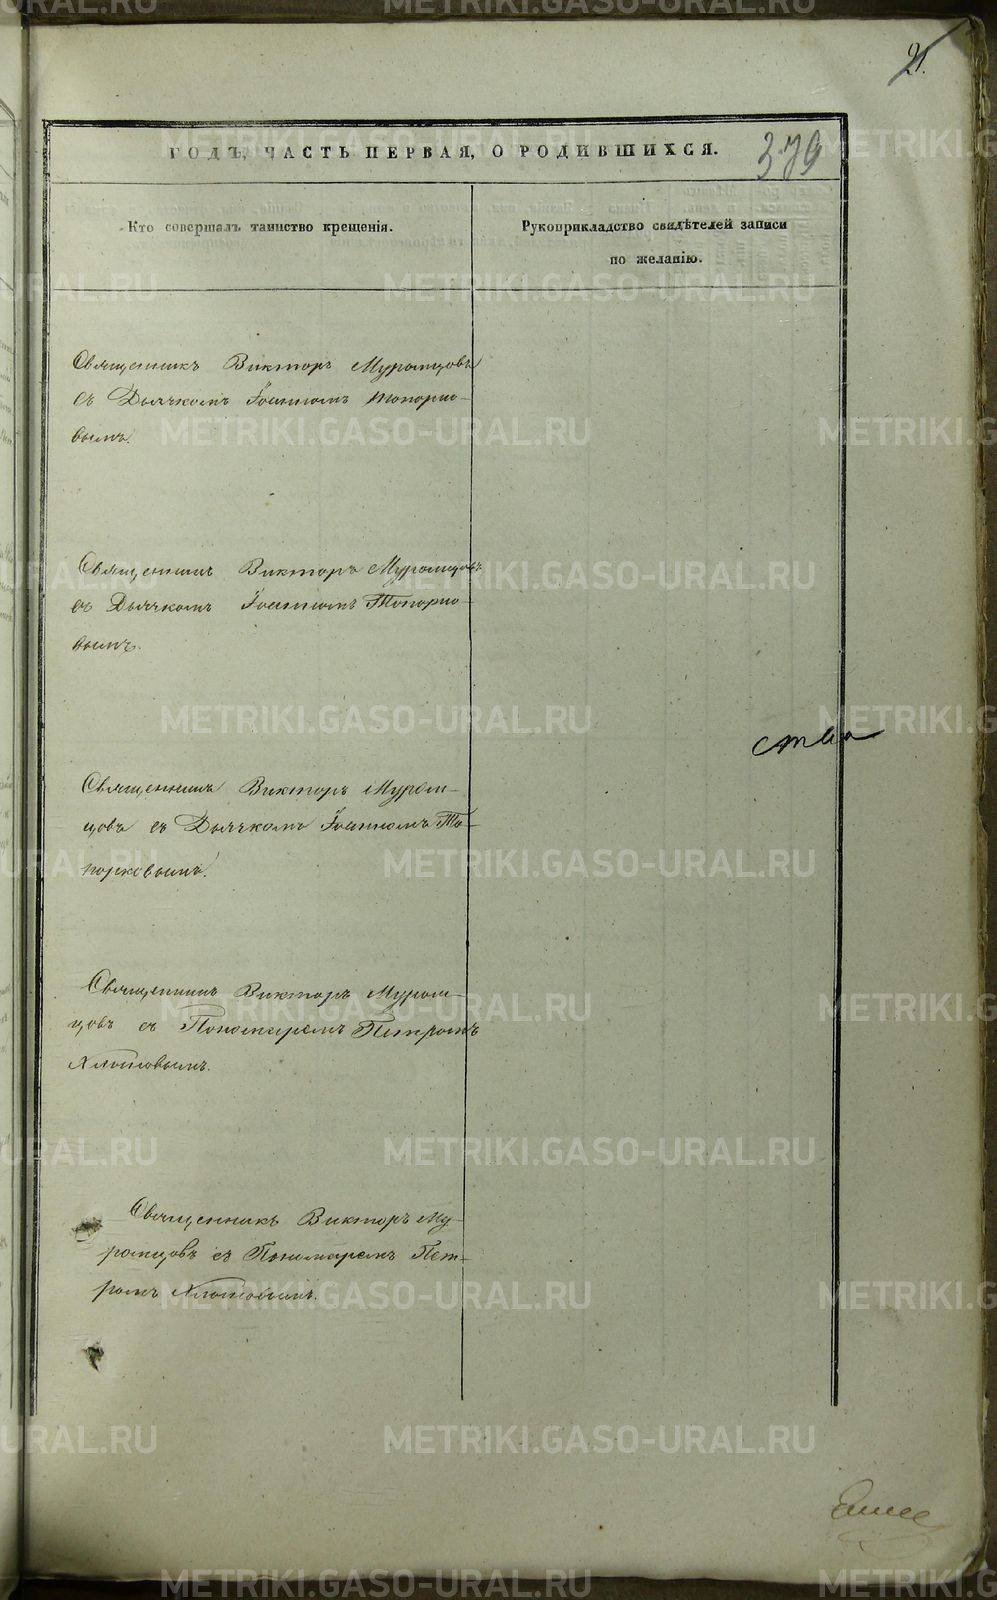 21.
379
ГОДЪ, ЧАСТЬ ПЕРВАЯ, О РОДИВШИХСЯ.
Кто совершалъ таинство крещенія.
Рукоприкладство свидѣтелей записи
по желанію.
Священникъ Викторъ Муромцовъ
съ Дьячкомъ Іоанномъ Топорко-
вымъ.
Священникъ Викторъ Муромцовъ
съ Дьячкомъ Іоанномъ Топорко-
вымъ.
ства
Священникъ Викторъ Муром-
цовъ съ Дьячкомъ Іоанномъ То-
порковымъ.
Священникъ Викторъ Муром-
цовъ съ Пономаремъ Петромъ
Хлотовымъ.
Священникъ Викторъ Му-
ромцовъ съ Пономаремъ Пет-
ромъ Хлотовымъ.
METRIKI.GASO-URAL.RU